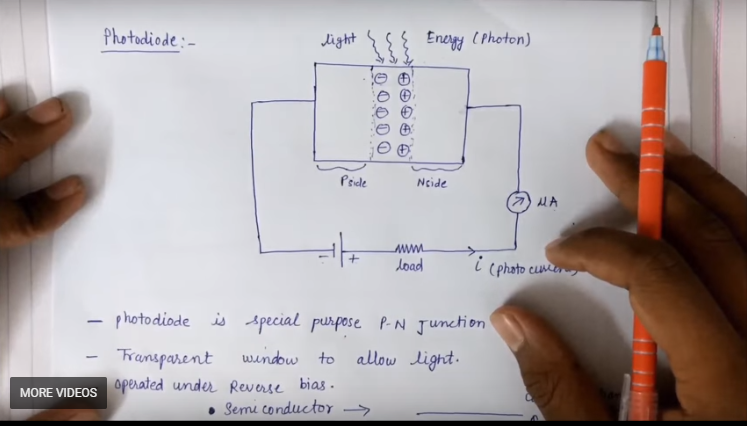 Photodiode:-
light Energy (Photon)
Pside Nside
μA
- +
load
i (photo current)
- photodiode is special purpose P-N Junction
- Transparent window to allow light.
operated under Reverse bias.
MORE VIDEOS
• Semiconductor →